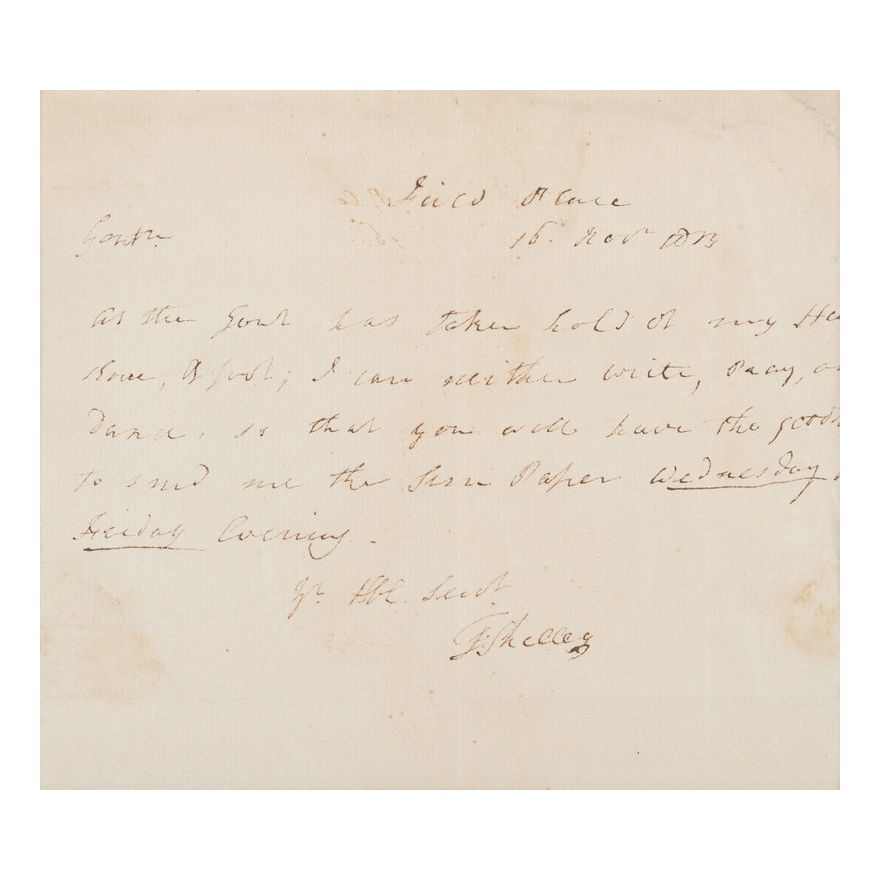 Field Place
Gentn.
16. Novr 1813
As the Gout has taken hold of my
Knee, & foot; I can neither write, Pray, or
Dance, so that you will have the
to send me the Sun Paper Wednesday
Friday Evening.
Yr. Hbl. Servt.
T: Shelley